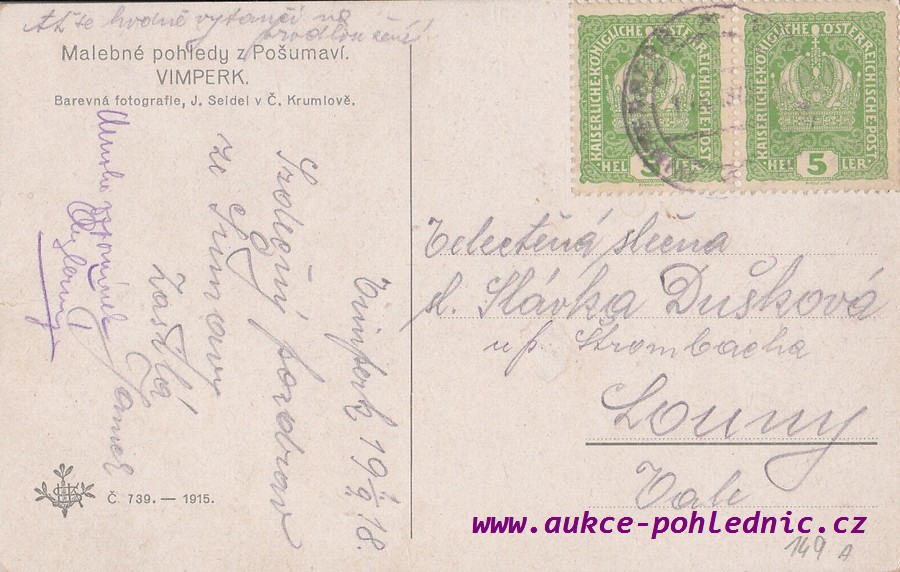 Ať se hodně vytančí na
prodloužené!
Malebné pohledy z Pošumaví.
VIMPERK.
Barevná fotografie, J. Seidel v Č. Krumlově.
Srdečný pozdrav
ze Šumavy
zasílá
Vimperk 19/9 18.
Č. 739. — 1915.
KAISERLICHE KÖNIGLICHE ÖSTERREICHISCHE POST
HELLER
5
KAISERLICHE KÖNIGLICHE ÖSTERREICHISCHE POST
HELLER
5
Velectěná slečna
sl. Slávka Dušková
u p. Strombacha
Louny
www.aukce-pohlednic.cz
149 A